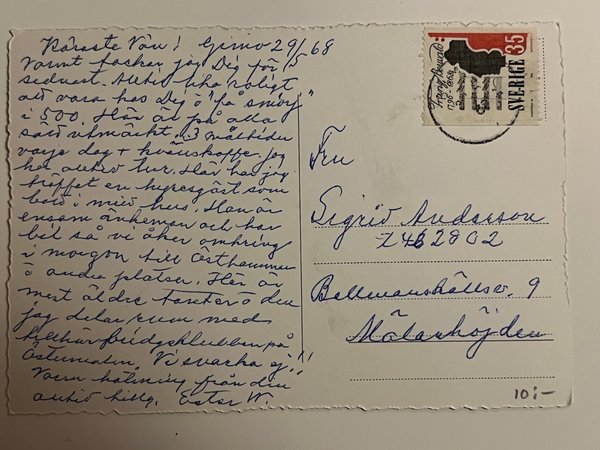 Käraste Vän! Gimo 29/5 68
Varmt tackar jag Dig för
senast. Alltid lika roligt
att vara hos Dig o få smörj
i 500. Här är på alla
sätt utmärkt. 3 måltider
varje dag + kvällskaffe. Jag
har alltid tur. Här har jag
träffat en hyresgäst som
bott i mitt hus. Han är
ensam änkeman och har
bil så vi åker omkring
i morgon till Östhammar
o andra platser. Här är
mest äldre tanter o den
jag delar rum med
tillhör fridsklubben på
Östermalm. Vi svarka ej!!
Varm hälsning från din
alltid tillg. Ester W.
Franz Berwald
1796-1868
SVERIGE 35
Fru
Sigrid Andersson
Bellmanskällsv. 9
Mälarhöjden
10:-